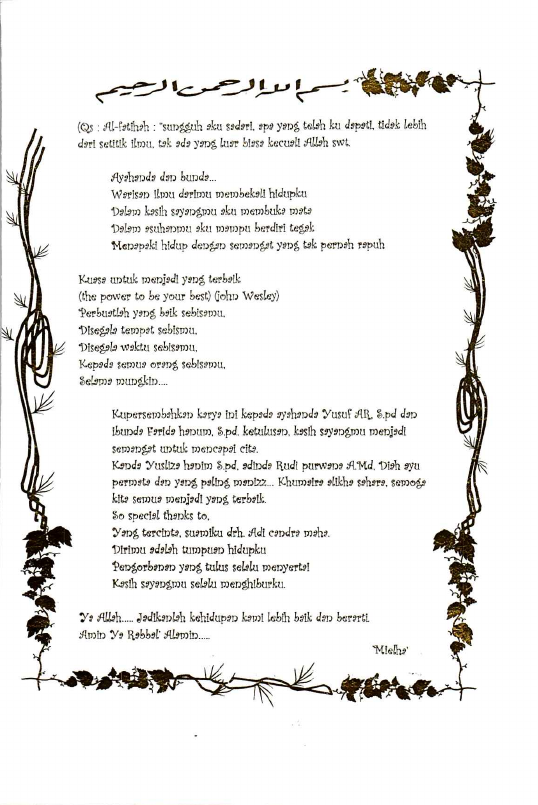 بسم الله الرحمن الرحيم
(Qs : Al-fatihah : "sungguh aku sadari, apa yang telah ku dapati, tidak lebih
dari setitik ilmu, tak ada yang luar biasa kecuali Allah swt.
Ayahanda dan bunda...
Warisan ilmu darimu membekali hidupku
Dalam kasih sayangmu aku membuka mata
Dalam asuhanmu aku mampu berdiri tegak
Menapaki hidup dengan semangat yang tak pernah rapuh
Kuasa untuk menjadi yang terbaik
(the power to be your best) (John Wesley)
Perbuatlah yang baik sebisamu,
Disegala tempat sebismu,
Disegala waktu sebisamu,
Kepada semua orang sebisamu,
Selama mungkin....
Kupersembahkan karya ini kepada ayahanda Yusuf AR, S.pd dan
ibunda Farida hanum, S.pd. ketulusan, kasih sayangmu menjadi
semangat untuk mencapai cita.
Kanda Yusliza hanim S.pd, adinda Rudi purwana A.Md, Diah ayu
permata dan yang paling manizz... Khumaira alikha sahara, semoga
kita semua menjadi yang terbaik.
So special thanks to,
Yang tercinta, suamiku drh. Adi candra maha.
Dirimu adalah tumpuan hidupku
Pengorbanan yang tulus selalu menyertai
Kasih sayangmu selalu menghiburku.
Ya Allah..... Jadikanlah kehidupan kami lebih baik dan berarti.
Amin Ya Rabbal' Alamin.....
'Mielha'